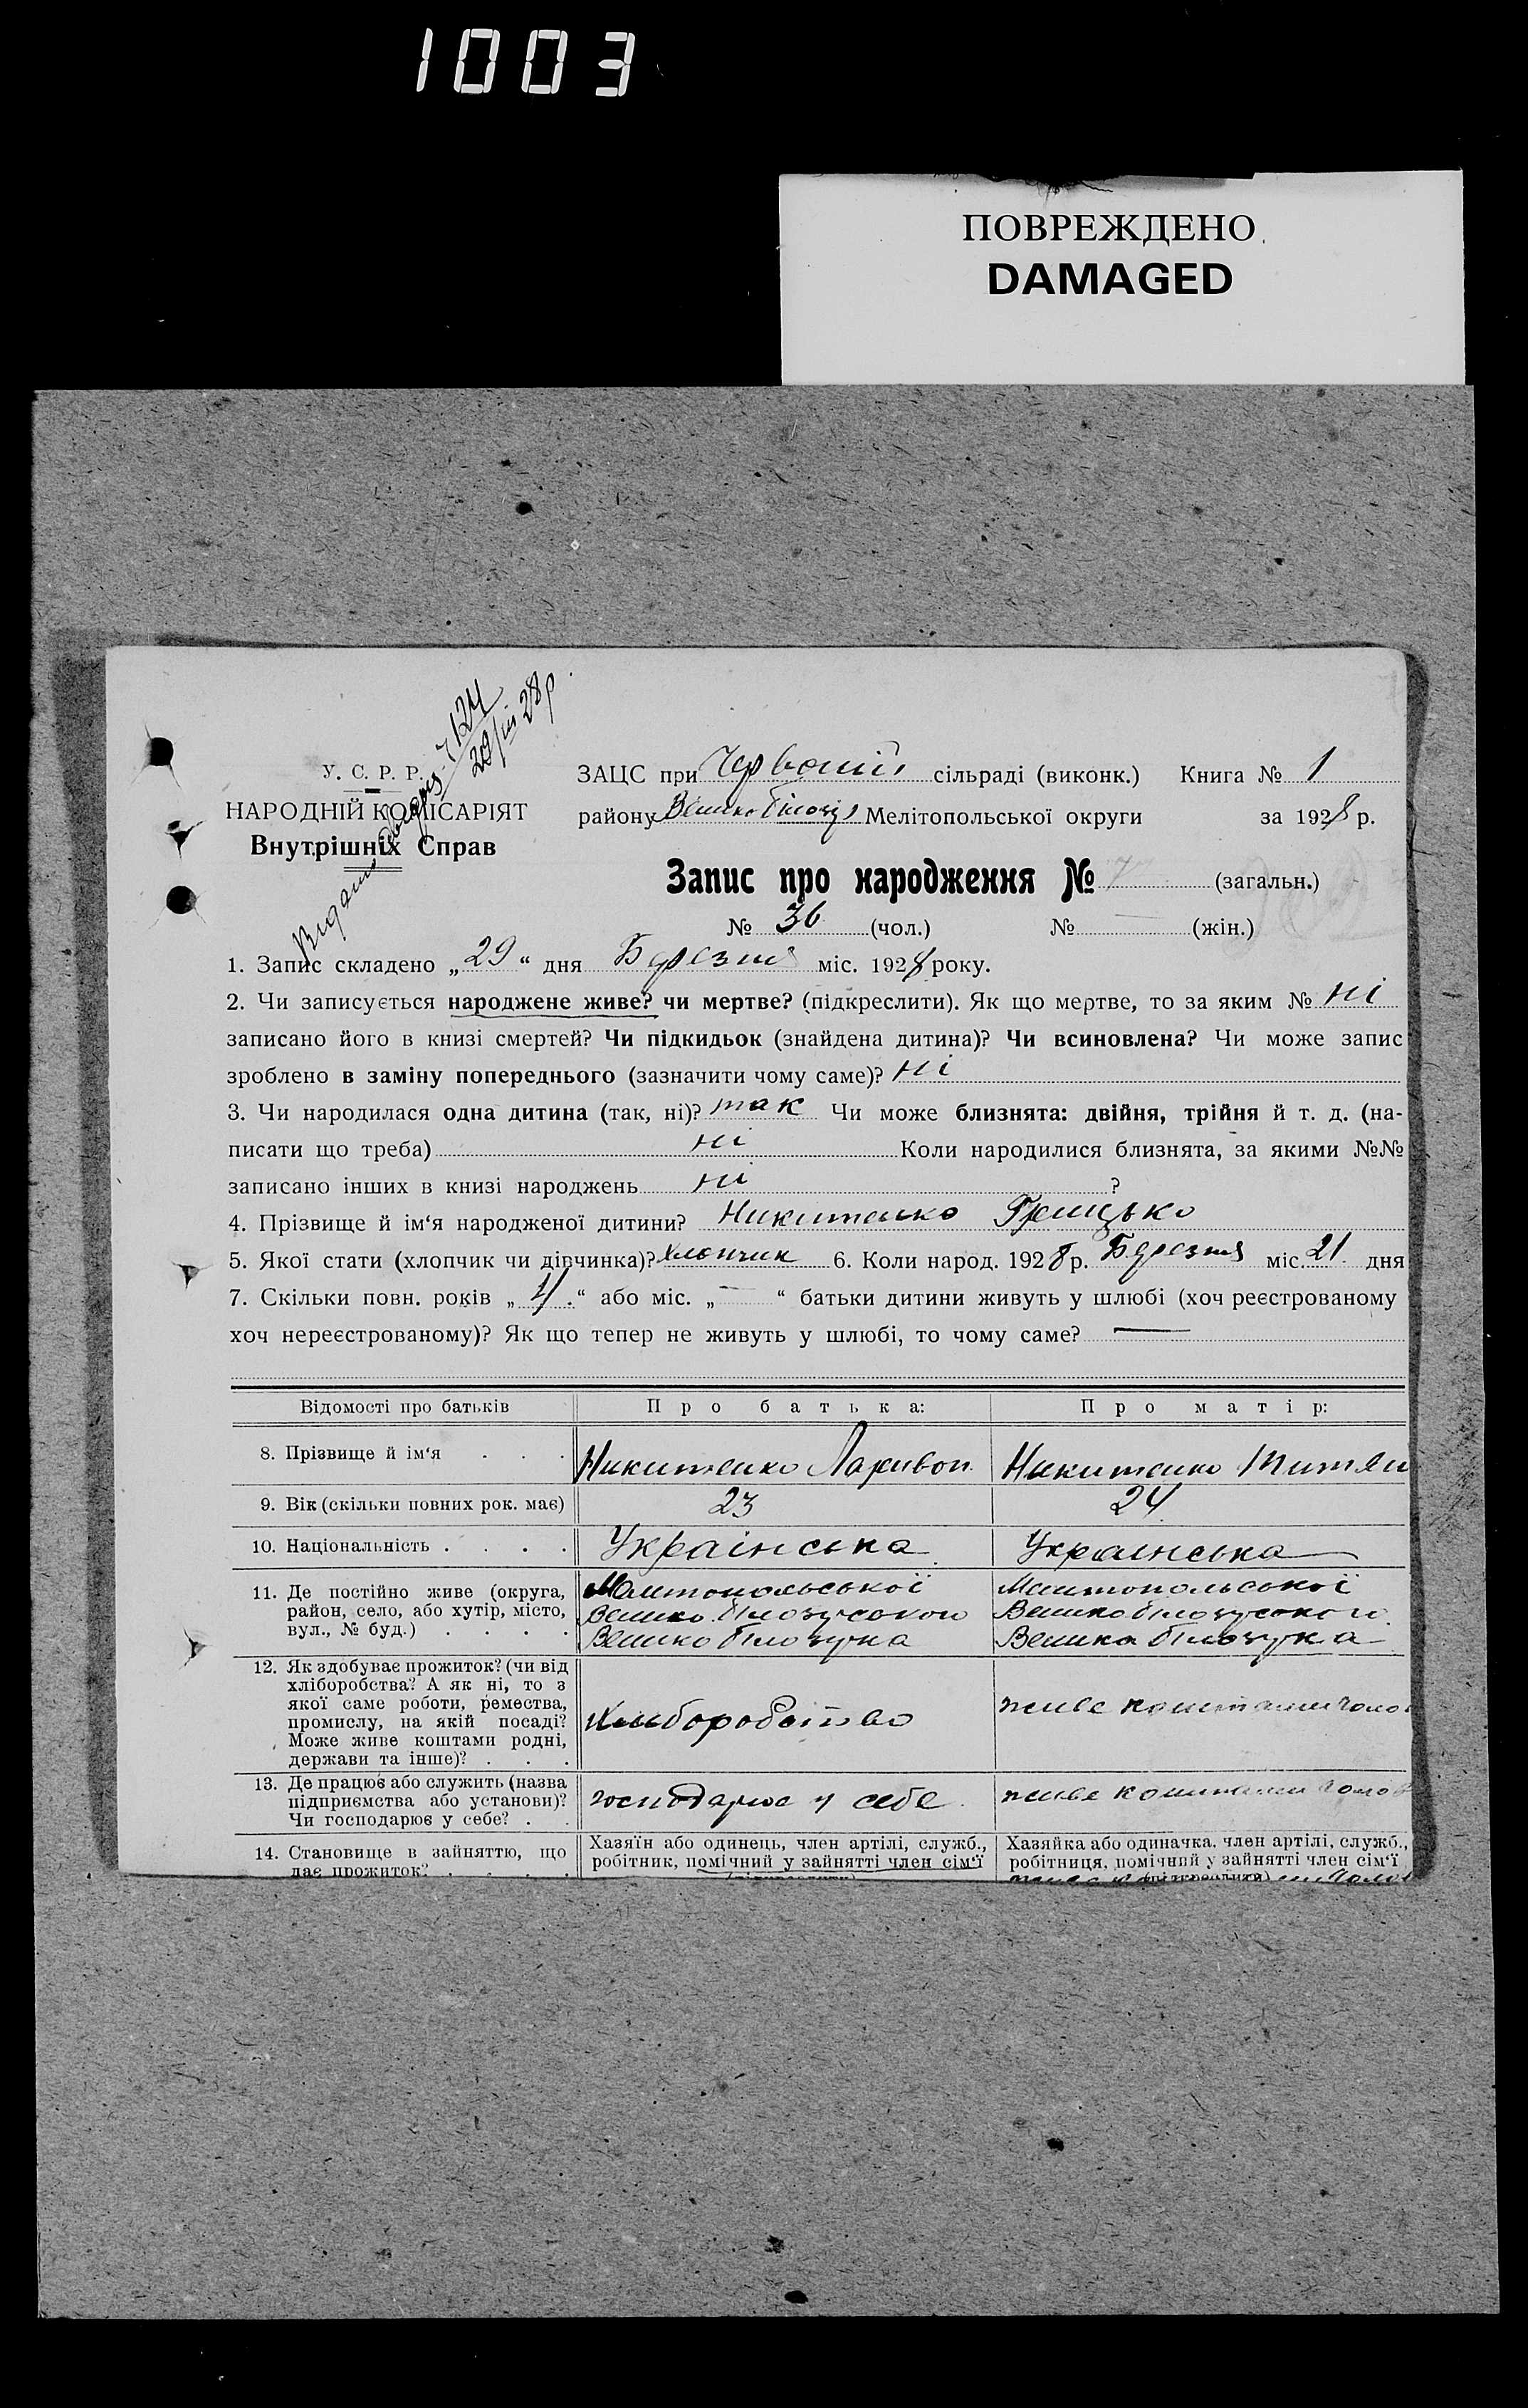 1003
ПОВРЕЖДЕНО
DAMAGED
№ 124
29/III 28 р.
У. С. Р. Р.
НАРОДНІЙ КОМІСАРІЯТ
Внутрішніх Справ
ЗАЦС при Червоній сільраді (виконк.) Книга № 1
району Мелітопольської округи за 1928 р.
Запис про народження № (загальн.)
№ 36 (чол.) № — (жін.)
1. Запис складено „29“ дня Березня міс. 1928 року.
2. Чи записується народжене живе? чи мертве? (підкреслити). Як що мертве, то за яким № ні
записано його в книзі смертей? Чи підкидьок (знайдена дитина)? Чи всиновлена? Чи може запис
зроблено в заміну попереднього (зазначити чому саме)? ні
3. Чи народилася одна дитина (так, ні)? так Чи може близнята: двійня, трійня й т. д. (на-
писати що треба) ні Коли народилися близнята, за якими №№
записано інших в книзі народжень ні ?
4. Прізвище й ім‘я народженої дитини? Никитенко Грицько
5. Якої стати (хлопчик чи дівчинка)? Хлопчик 6. Коли народ. 1928 р. Березня міс. 21 дня
7. Скільки повн. років „4“ або міс. „—“ батьки дитини живуть у шлюбі (хоч реєстрованому
хоч нереєстрованому)? Як що тепер не живуть у шлюбі, то чому саме? —
Відомості про батьків Про батька: Про матір:
8. Прізвище й ім‘я . . . Никитенко Ларивон Никитенко
9. Вік (скільки повних рок. має) 23 24
10. Національність . . . . Українська Українська
11. Де постійно живе (округа, Мелітопольської Мелітопольської
район, село, або хутір, місто, Велико Білозурського Велико Білозурського
вул., № буд.) . . . . Велико Білозурка Велика Білозурка
12. Як здобуває прожиток? (чи від
хліборобства? А як ні, то з
якої саме роботи, ремества, живе коштами
промислу, на якій посаді? Хліборобство
Може живе коштами родні,
держави та інше)? . . .
13. Де працює або служить (назва
підприємства або установи)? господарює у себе живе коштами
Чи господарює у себе? . .
14. Становище в зайняттю, що Хазяїн або одинець, член артілі, служб., Хазяйка або одиначка, член артілі, служб.,
дає прожиток? . . . . робітник, помічний у зайнятті член сім‘ї робітниця, помічний у зайнятті член сім‘ї
(підкреслити)